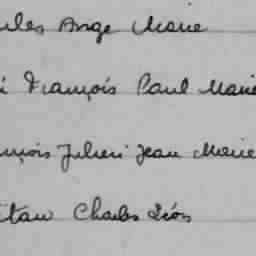 Ange Marie
François Paul Marie
Julien Jean Marie
Charles Léon